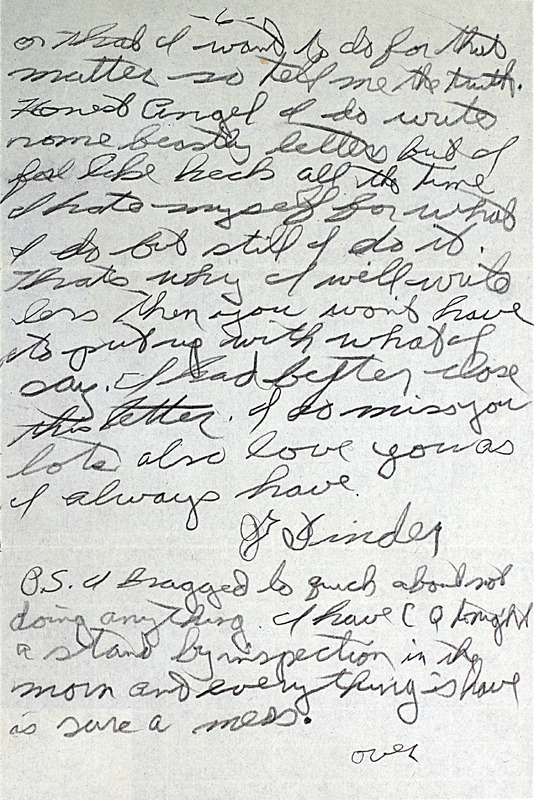 -6-
or what I want to do for that
matter so tell me the truth.
Honest Angel I do write
some beastly letters but I
feel like heck all the time
I hate myself for what
I do but still I do it.
Thats why I will write
less then you wont have
to put up with what I
say. I had better close
this letter. I do miss you
lots also love you as
I always have.
P.S. I bragged to much about not
doing anything. I have C Q tonight
a stand by inspection in the
morn and everything is have
is sure a mess.
over